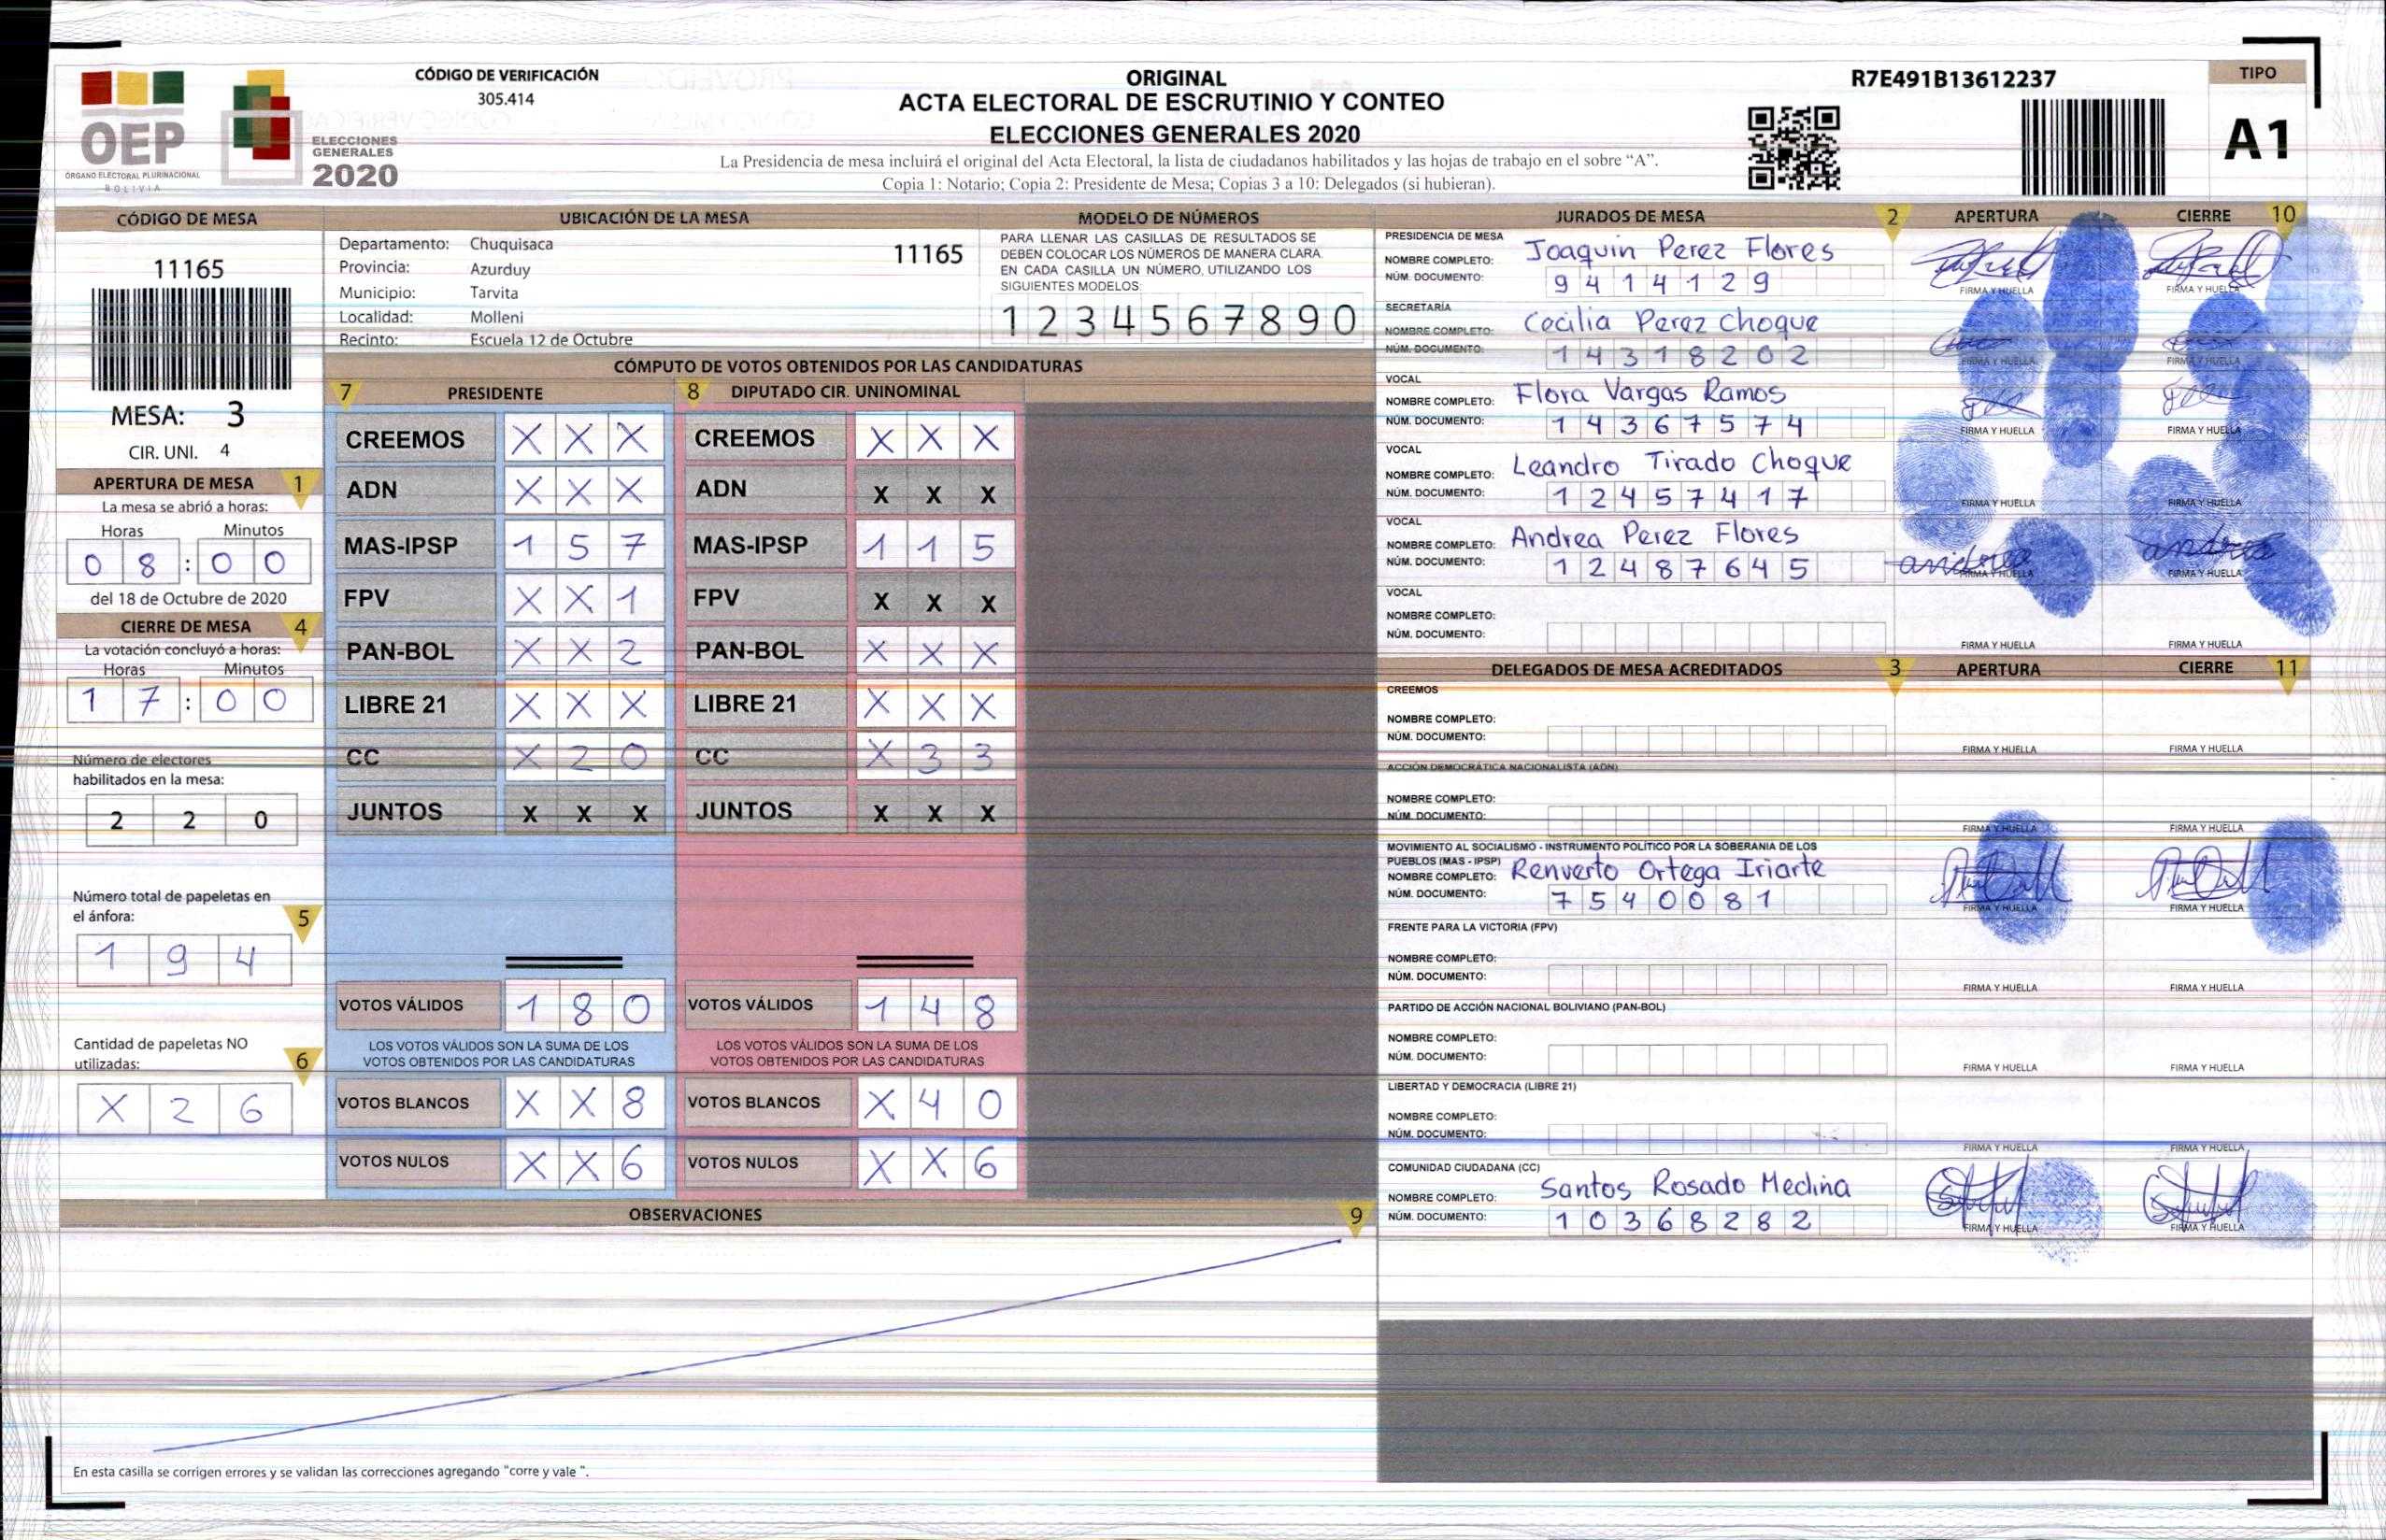 CÓDIGO DE VERIFICACIÓN
305.414
OEP
ÓRGANO ELECTORAL PLURINACIONAL
BOLIVIA
ELECCIONES
GENERALES
2020
ORIGINAL
ACTA ELECTORAL DE ESCRUTINIO Y CONTEO
ELECCIONES GENERALES 2020
La Presidencia de mesa incluirá el original del Acta Electoral, la lista de ciudadanos habilitados y las hojas de trabajo en el sobre “A”.
Copia 1: Notario; Copia 2: Presidente de Mesa; Copias 3 a 10: Delegados (si hubieran).
R7E491B13612237
TIPO
A1
CÓDIGO DE MESA
11165
MESA: 3
CIR. UNI. 4
APERTURA DE MESA 1
La mesa se abrió a horas:
Horas Minutos
0 8 : 0 0
del 18 de Octubre de 2020
CIERRE DE MESA 4
La votación concluyó a horas:
Horas Minutos
1 7 : 0 0
Número de electores
habilitados en la mesa:
2 2 0
Número total de papeletas en
el ánfora: 5
1 9 4
Cantidad de papeletas NO
utilizadas: 6
X 2 6
UBICACIÓN DE LA MESA
Departamento: Chuquisaca 11165
Provincia: Azurduy
Municipio: Tarvita
Localidad: Molleni
Recinto: Escuela 12 de Octubre
MODELO DE NÚMEROS
PARA LLENAR LAS CASILLAS DE RESULTADOS SE
DEBEN COLOCAR LOS NÚMEROS DE MANERA CLARA.
EN CADA CASILLA UN NÚMERO, UTILIZANDO LOS
SIGUIENTES MODELOS:
1 2 3 4 5 6 7 8 9 0
CÓMPUTO DE VOTOS OBTENIDOS POR LAS CANDIDATURAS
7 PRESIDENTE 8 DIPUTADO CIR. UNINOMINAL
CREEMOS X X X CREEMOS X X X
ADN X X X ADN X X X
MAS-IPSP 1 5 7 MAS-IPSP 1 1 5
FPV X X 1 FPV X X X
PAN-BOL X X 2 PAN-BOL X X X
LIBRE 21 X X X LIBRE 21 X X X
CC X 2 0 CC X 3 3
JUNTOS X X X JUNTOS X X X
VOTOS VÁLIDOS 1 8 0 VOTOS VÁLIDOS 1 4 8
LOS VOTOS VÁLIDOS SON LA SUMA DE LOS LOS VOTOS VÁLIDOS SON LA SUMA DE LOS
VOTOS OBTENIDOS POR LAS CANDIDATURAS VOTOS OBTENIDOS POR LAS CANDIDATURAS
VOTOS BLANCOS X X 8 VOTOS BLANCOS X 4 0
VOTOS NULOS X X 6 VOTOS NULOS X X 6
OBSERVACIONES 9
En esta casilla se corrigen errores y se validan las correcciones agregando "corre y vale ".
JURADOS DE MESA 2 APERTURA CIERRE 10
PRESIDENCIA DE MESA
NOMBRE COMPLETO: Joaquin Perez Flores
NÚM. DOCUMENTO: 9 4 1 4 1 2 9
FIRMA Y HUELLA FIRMA Y HUELLA
SECRETARÍA
NOMBRE COMPLETO: Cecilia Perez Choque
NÚM. DOCUMENTO: 1 4 3 1 8 2 0 2
FIRMA Y HUELLA FIRMA Y HUELLA
VOCAL
NOMBRE COMPLETO: Flora Vargas Ramos
NÚM. DOCUMENTO: 1 4 3 6 7 5 7 4
FIRMA Y HUELLA FIRMA Y HUELLA
VOCAL
NOMBRE COMPLETO: Leandro Tirado Choque
NÚM. DOCUMENTO: 1 2 4 5 7 4 1 7
FIRMA Y HUELLA FIRMA Y HUELLA
VOCAL
NOMBRE COMPLETO: Andrea Perez Flores
NÚM. DOCUMENTO: 1 2 4 8 7 6 4 5
andrea andrea
FIRMA Y HUELLA FIRMA Y HUELLA
VOCAL
NOMBRE COMPLETO:
NÚM. DOCUMENTO:
FIRMA Y HUELLA FIRMA Y HUELLA
DELEGADOS DE MESA ACREDITADOS 3 APERTURA CIERRE 11
CREEMOS
NOMBRE COMPLETO:
NÚM. DOCUMENTO:
FIRMA Y HUELLA FIRMA Y HUELLA
ACCIÓN DEMOCRÁTICA NACIONALISTA (ADN)
NOMBRE COMPLETO:
NÚM. DOCUMENTO:
FIRMA Y HUELLA FIRMA Y HUELLA
MOVIMIENTO AL SOCIALISMO - INSTRUMENTO POLÍTICO POR LA SOBERANIA DE LOS
PUEBLOS (MAS - IPSP)
NOMBRE COMPLETO: Renverto Ortega Iriarte
NÚM. DOCUMENTO: 7 5 4 0 0 8 1
FIRMA Y HUELLA FIRMA Y HUELLA
FRENTE PARA LA VICTORIA (FPV)
NOMBRE COMPLETO:
NÚM. DOCUMENTO:
FIRMA Y HUELLA FIRMA Y HUELLA
PARTIDO DE ACCIÓN NACIONAL BOLIVIANO (PAN-BOL)
NOMBRE COMPLETO:
NÚM. DOCUMENTO:
FIRMA Y HUELLA FIRMA Y HUELLA
LIBERTAD Y DEMOCRACIA (LIBRE 21)
NOMBRE COMPLETO:
NÚM. DOCUMENTO:
FIRMA Y HUELLA FIRMA Y HUELLA
COMUNIDAD CIUDADANA (CC)
NOMBRE COMPLETO: Santos Rosado Medina
NÚM. DOCUMENTO: 1 0 3 6 8 2 8 2
FIRMA Y HUELLA FIRMA Y HUELLA